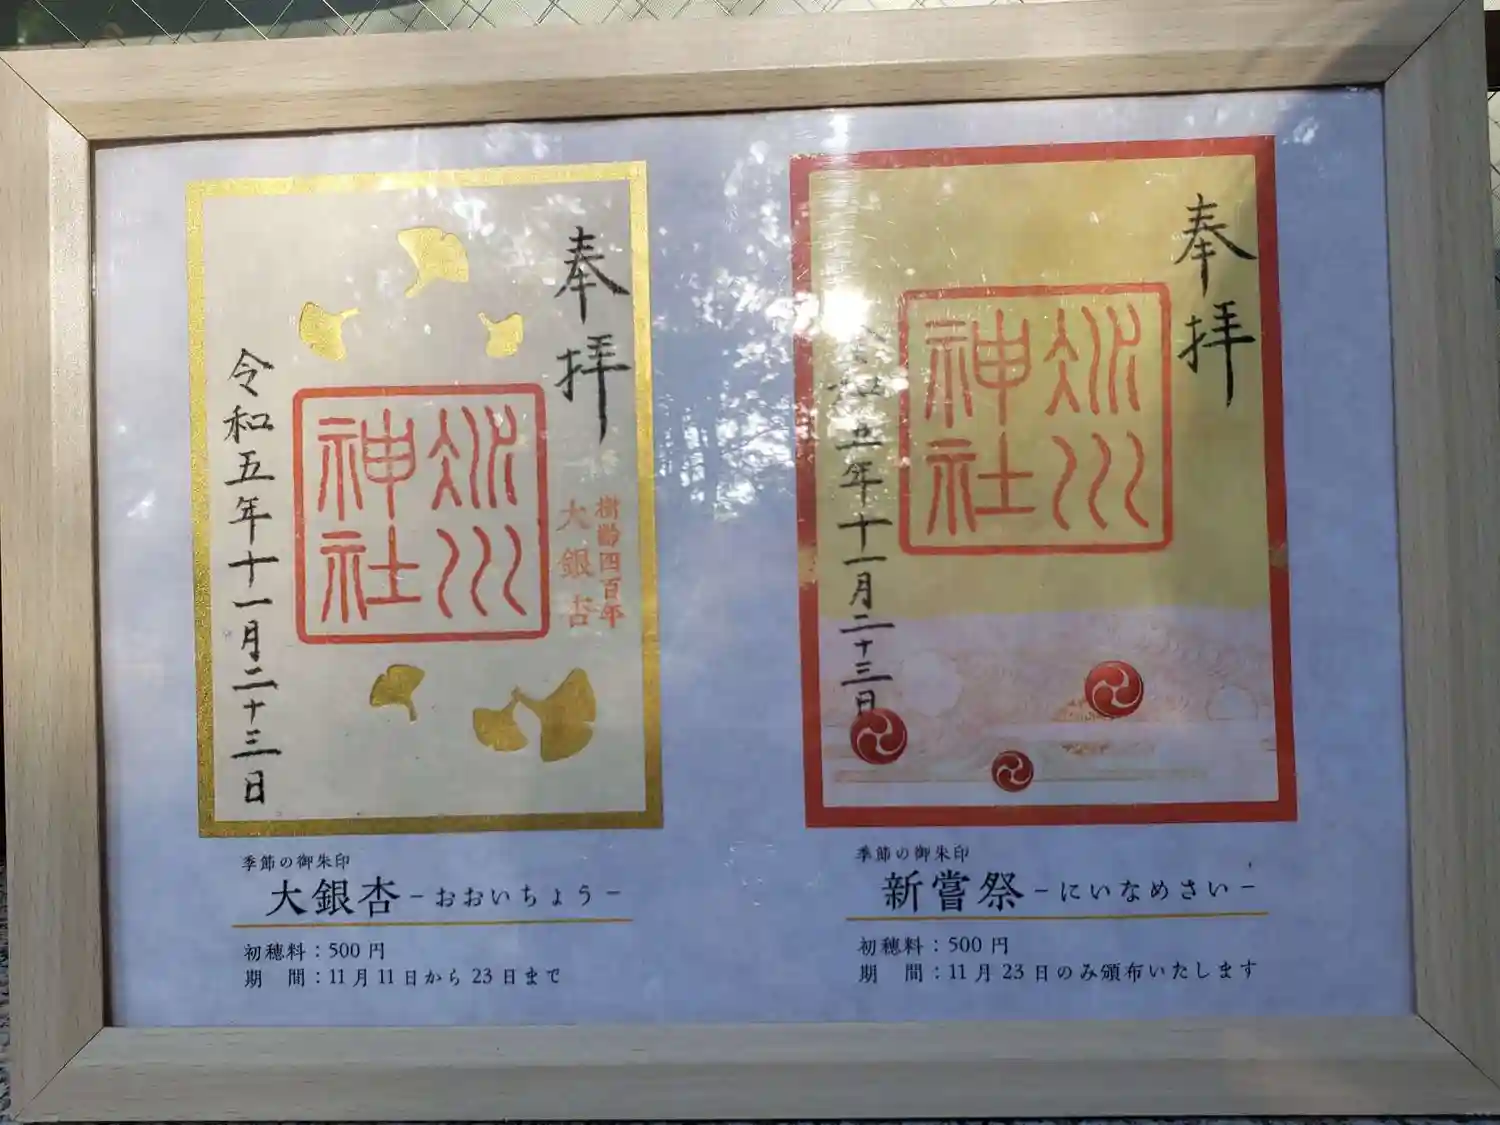 奉拝
樹齢四百年
大銀杏
冰川
神社
令和五年十一月二十三日
季節の御朱印
大銀杏-おおいちょう-
初穂料：500円
期　間：11月11日から23日まで
奉拝
冰川
神社
令和五年十一月二十三日
季節の御朱印
新嘗祭-にいなめさい-
初穂料：500円
期　間：11月23日のみ頒布いたします